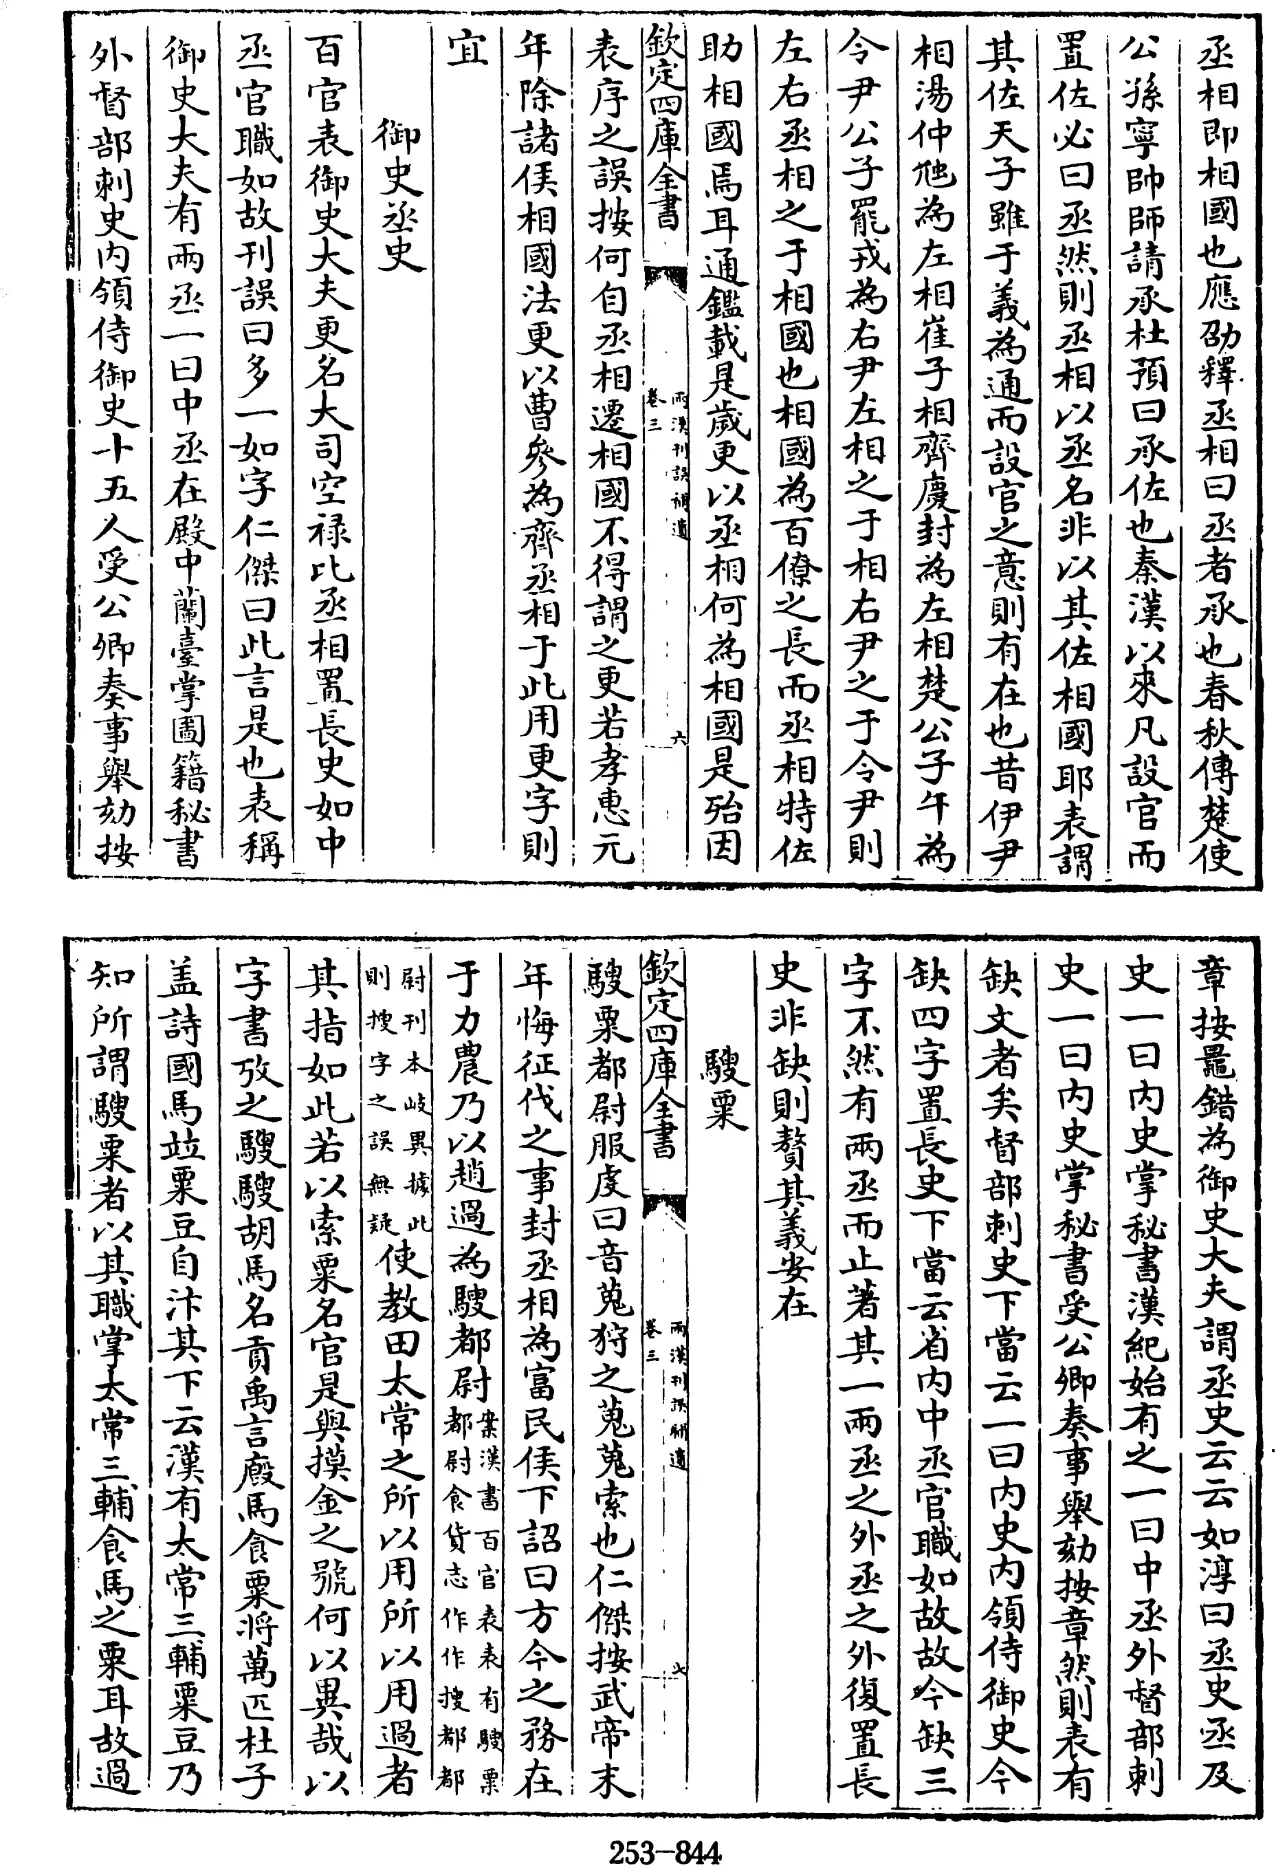 丞相即相國也應劭釋丞相曰丞者承也春秋傳楚使
公孫寧帥師請承杜預曰承佐也秦漢以來凡設官而
置佐必曰丞然則丞相以丞名非以其佐相國耶表謂
其佐天子雖于義為通而設官之意則有在也昔伊尹
相湯仲虺為左相崔子相齊慶封為左相楚公子午為
令尹公子罷戎為右尹左相之于相右尹之于令尹則
左右丞相之于相國也相國為百僚之長而丞相特佐
助相國焉耳通鑑載是歲更以丞相何為相國是殆因
欽定四庫全書
兩漢刊誤補遺
卷三
六
表序之誤按何自丞相遷相國不得謂之更若孝惠元
年除諸侯相國法更以曹參為齊丞相于此用更字則
宜
御史丞史
百官表御史大夫更名大司空祿比丞相置長史如中
丞官職如故刊誤曰多一如字仁傑曰此言是也表稱
御史大夫有兩丞一曰中丞在殿中蘭臺掌圖籍秘書
外督部刺史内領侍御史十五人受公卿奏事舉劾按
章按鼂錯為御史大夫謂丞史云云如淳曰丞史丞及
史一曰内史掌秘書漢紀始有之一曰中丞外督部刺
史一曰内史掌秘書受公卿奏事舉劾按章然則表有
缺文者矣督部刺史下當云一曰内史内領侍御史今
缺四字置長史下當云省内中丞官職如故故今缺三
字不然有兩丞而止著其一兩丞之外丞之外復置長
史非缺則贅其義安在
騪粟
欽定四庫全書
兩漢刊誤補遺
卷三
七
騪粟都尉服虔曰音蒐狩之蒐蒐索也仁傑按武帝末
年悔征伐之事封丞相為富民侯下詔曰方今之務在
于力農乃以趙過為騪都尉案漢書百官表表有騪粟都尉食貨志作作搜都都
尉刊本歧異據此則搜字之誤無疑使教田太常之所以用所以用過者
其指如此若以索粟名官是與摸金之號何以異哉以
字書攷之騪騪胡馬名貢禹言廏馬食粟將萬匹杜子
盖詩國馬竝粟豆自汴其下云漢有太常三輔粟豆乃
知所謂騪粟者以其職掌太常三輔食馬之粟耳故過
253-844